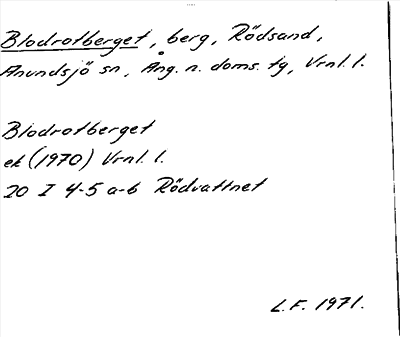 Blodrotberget, berg, Rödsand,
Anundsjö sn, Ång. n. doms. tg, Vrnl. l.
Blodrotberget
ek (1970) Vrnl. l.
20 I 4-5 a-b Rödvattnet
L.F. 1971.